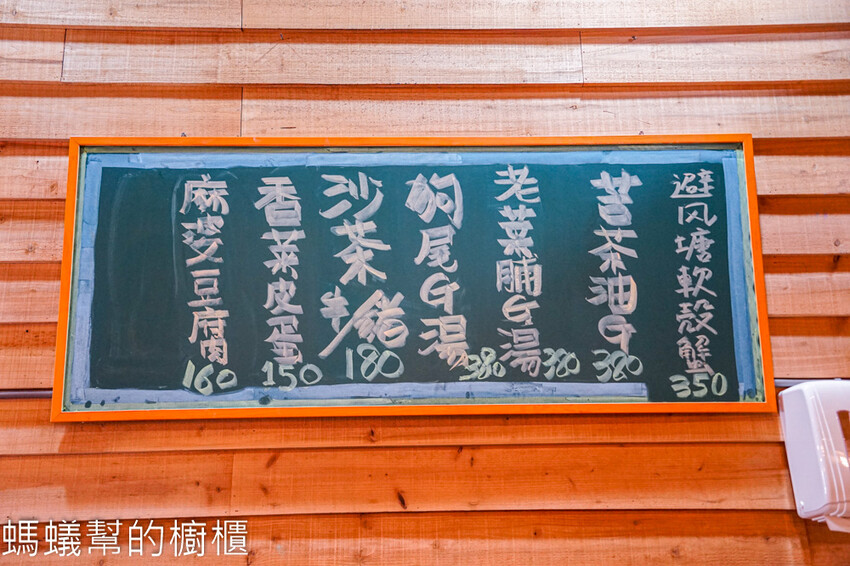 避风塘軟殼蟹 350
苦茶油G 380
老菜脯G湯 380
狗尾G湯 380
沙茶 180
香菜皮蛋 150
麻婆豆腐 160
螞蟻幫的櫥櫃